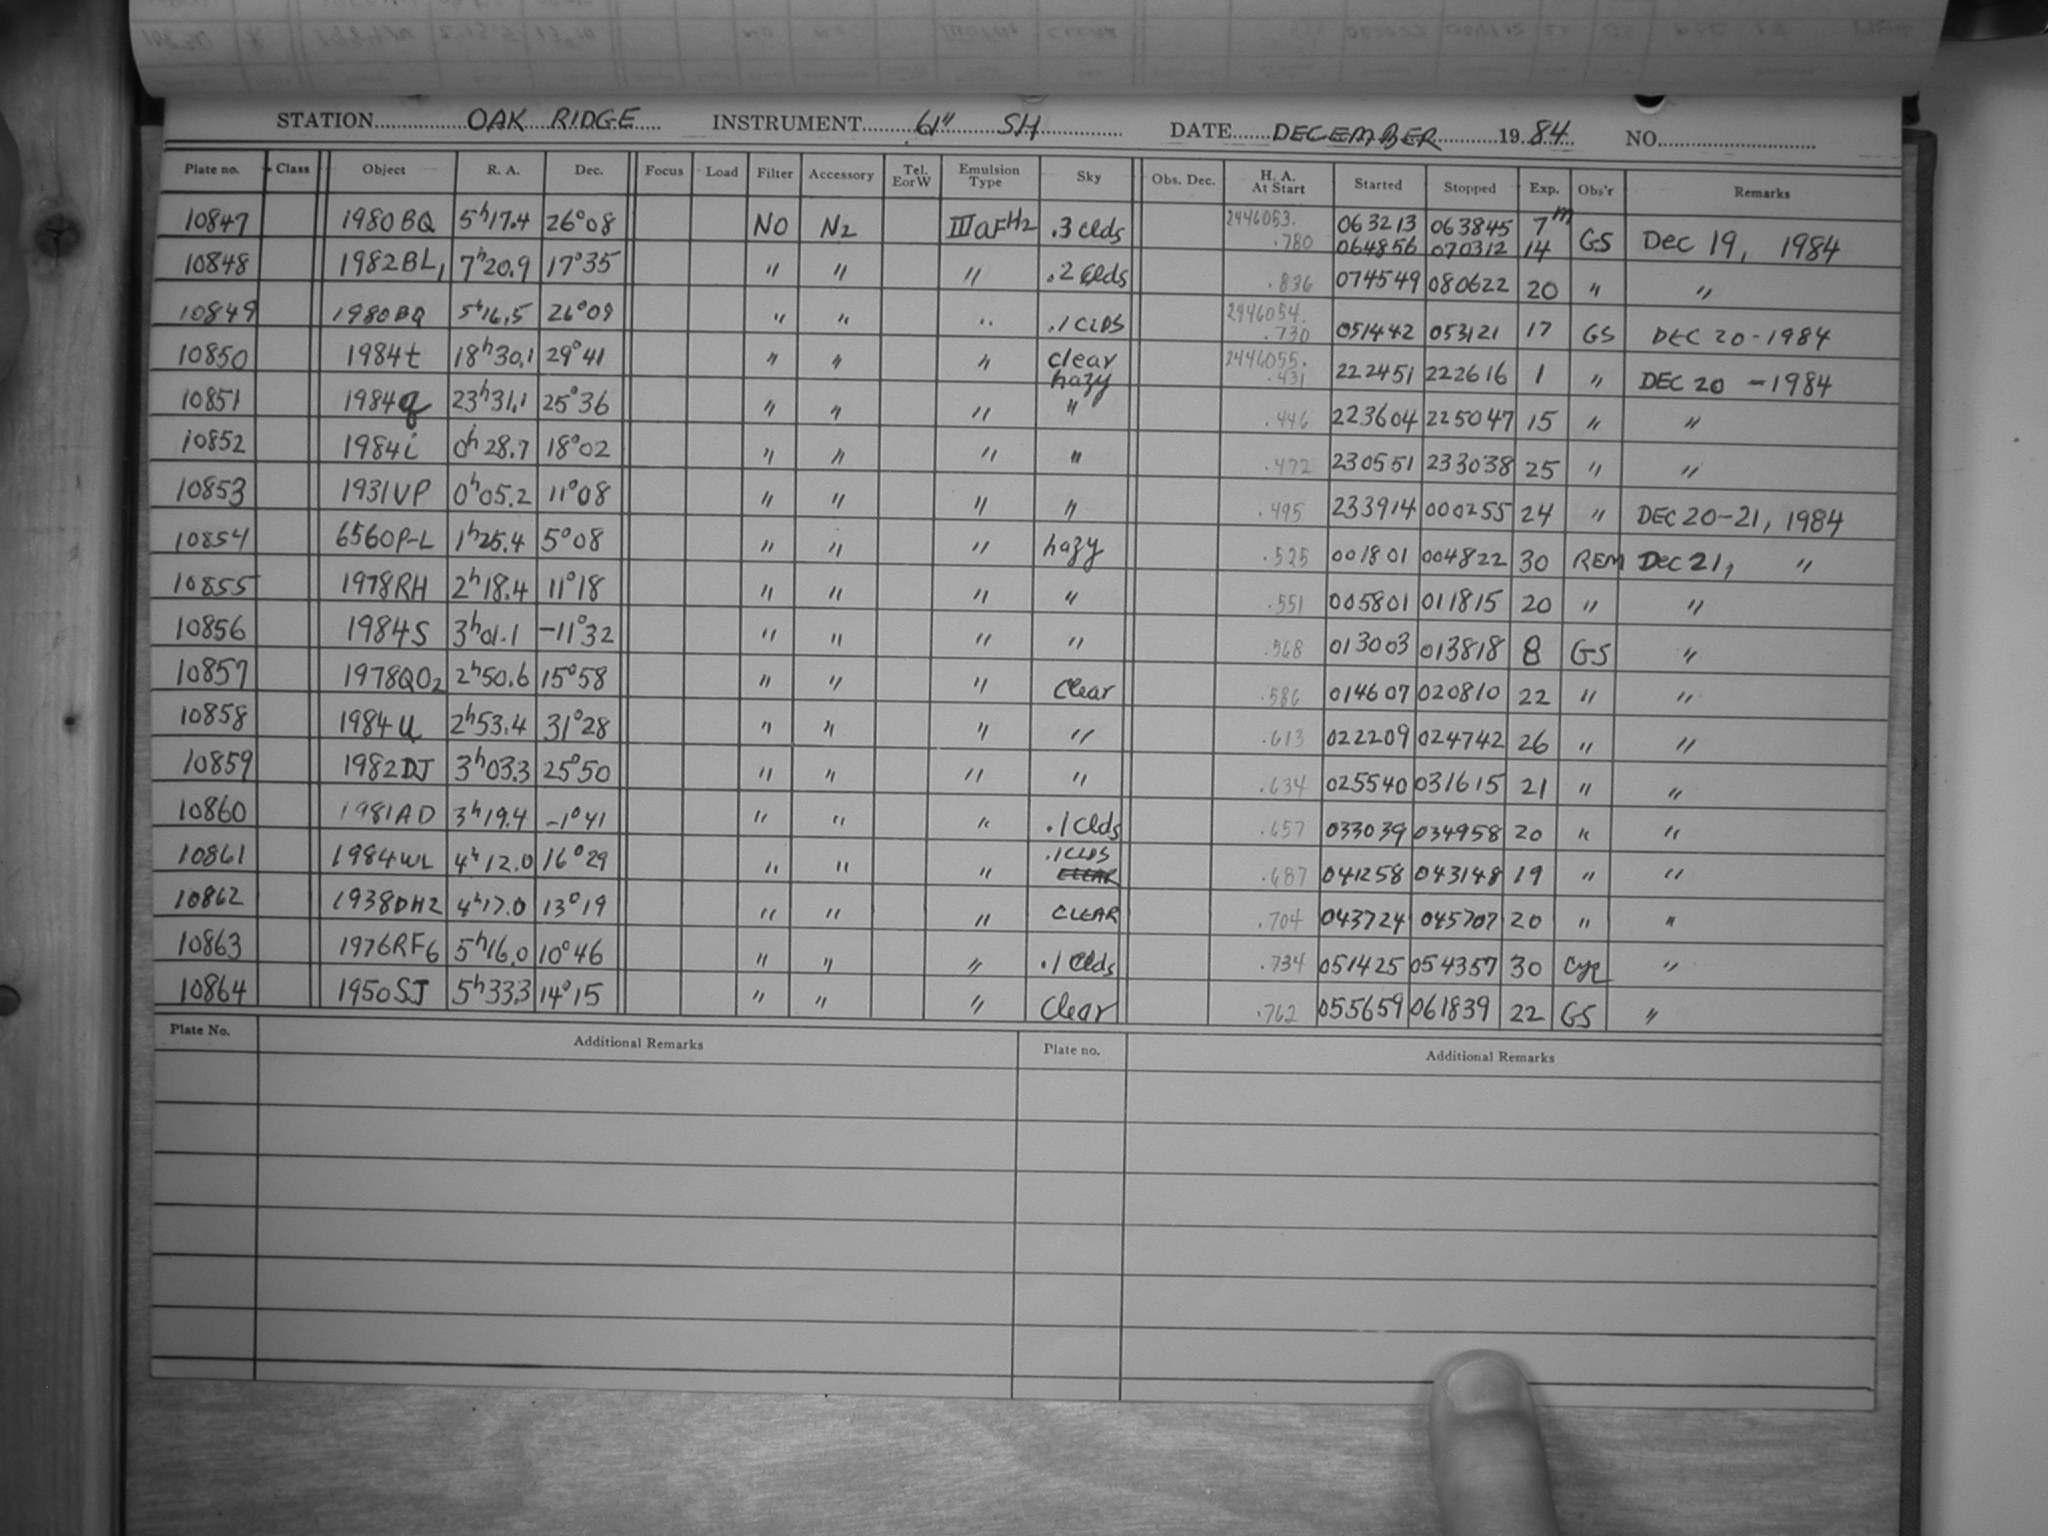 STATION OAK RIDGE INSTRUMENT 61" SH DATE DECEMBER 1984 NO.
Plate no. Class Object R. A. Dec. Focus Load Filter Accessory Tel. E or W Emulsion Type Sky Obs. Dec. H. A. At Start Started Stopped Exp. Obs'r Remarks
10847 1980 BQ 5h17.4 26°08 NO N2 IIIaF H2 .3 clds 2446053. .780 063213 063845 7m GS Dec 19, 1984
064856 070312 14
10848 1982BL1 7h20.9 17°35 " " " .2 clds .836 074549 080622 20 " "
10849 1980BQ 5h16.5 26°09 " " " .1 CLDS 2446054. .730 051442 053121 17 GS DEC 20-1984
10850 1984t 18h30.1 29°41 " " " clear hazy 2446055. .431 222451 222616 1 " DEC 20 -1984
10851 1984q 23h31.1 25°36 " " " " .446 223604 225047 15 " "
10852 1984i 0h28.7 18°02 " " " " .472 230551 233038 25 " "
10853 1931VP 0h05.2 11°08 " " " " .495 233914 000255 24 " DEC 20-21, 1984
10854 6560P-L 1h25.4 5°08 " " " hazy .525 001801 004822 30 REM Dec 21, "
10855 1978RH 2h18.4 11°18 " " " " .551 005801 011815 20 " "
10856 1984S 3h01.1 -11°32 " " " " .568 013003 013818 8 GS "
10857 1978QO2 2h50.6 15°58 " " " Clear .586 014607 020810 22 " "
10858 1984U 2h53.4 31°28 " " " " .613 022209 024742 26 " "
10859 1982DJ 3h03.3 25°50 " " " " .634 025540 031615 21 " "
10860 1981AD 3h19.4 -1°41 " " " .1 Clds .657 033039 034958 20 " "
10861 1984WL 4h12.0 16°29 " " " .1 CLDS CLEAR .687 041258 043148 19 " "
10862 1938DH2 4h17.0 13°19 " " " CLEAR .704 043724 045707 20 " "
10863 1976RF6 5h16.0 10°46 " " " .1 Clds .734 051425 054357 30 Cyl "
10864 1950SJ 5h33.3 14°15 " " " Clear .762 055659 061839 22 GS "
Plate No. Additional Remarks Plate no. Additional Remarks